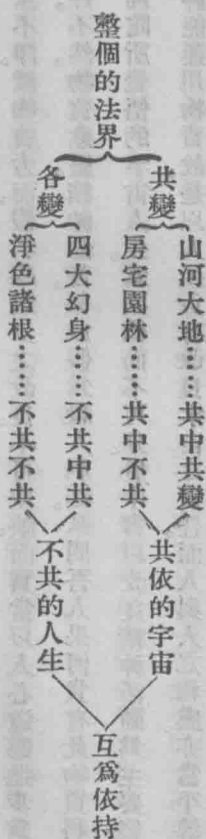 整個的法界
共變
各變
山河大地……共中共變
房宅園林……共中不共
四大幻身……不共中共
淨色諸根……不共不共
共依的宇宙
不共的人生
互爲依持